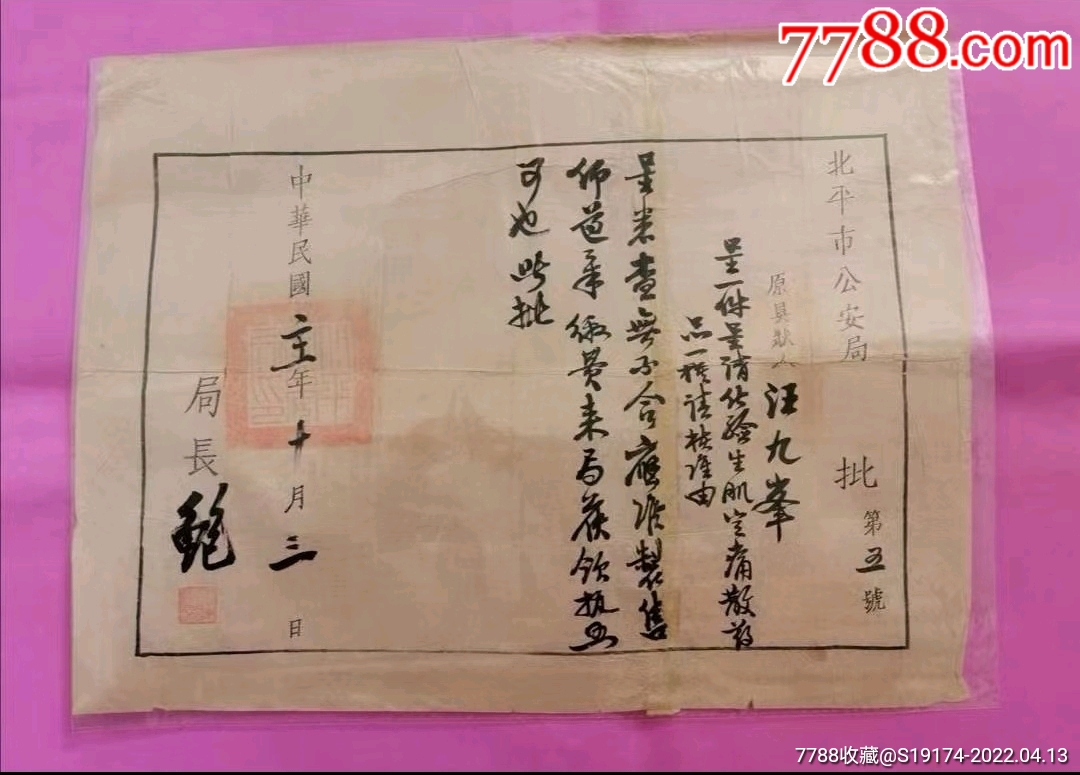 7788.com
北平市公安局 批 第五號
原具狀人 汪九峯
呈一件呈請化驗生肌定痛散葯
品一種請核准由
呈悉查無不合應准製售
仰遵章繳費來局候領執照
可也此批
中華民國 年十月三日
局長 鮑
7788收藏@S19174-2022.04.13